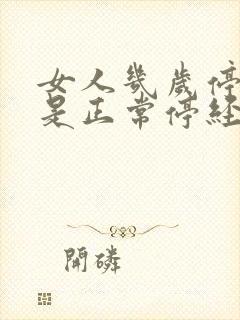 女人幾歲停
是正常停経
開磷